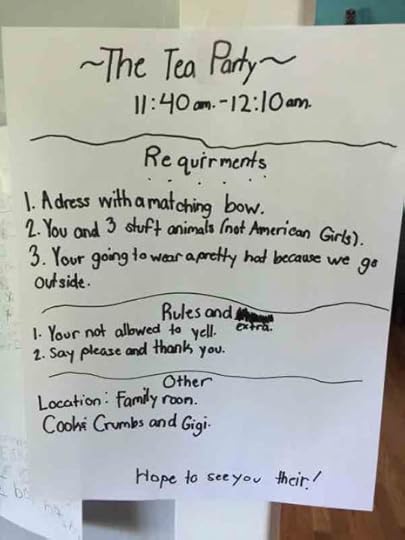 ~The Tea Party~
11:40 am. - 12:10 am.
Requirments
1. A dress with a matching bow.
2. You and 3 stuft animals (not American Girls).
3. Your going to wear a pretty hat because we go
outside.
Rules and
extra.
1. Your not allowed to yell.
2. Say please and thank you.
Other
Location: Family roon.
Cooki Crumbs and Gigi.
Hope to see you their!